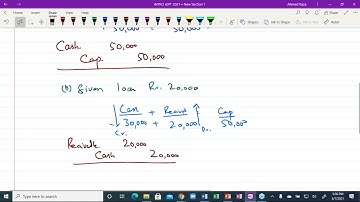 INTRO APT 2021 • New Section 1
Ahmed Raza
Cash 50,000
Cap. 50,000
(b) Given loan Rs. 20,000
Cash + Receivable Cap
30,000 + 20,000 50,000
Cr. Dr.
Receivable 20,000
Cash 20,000
Type here to search